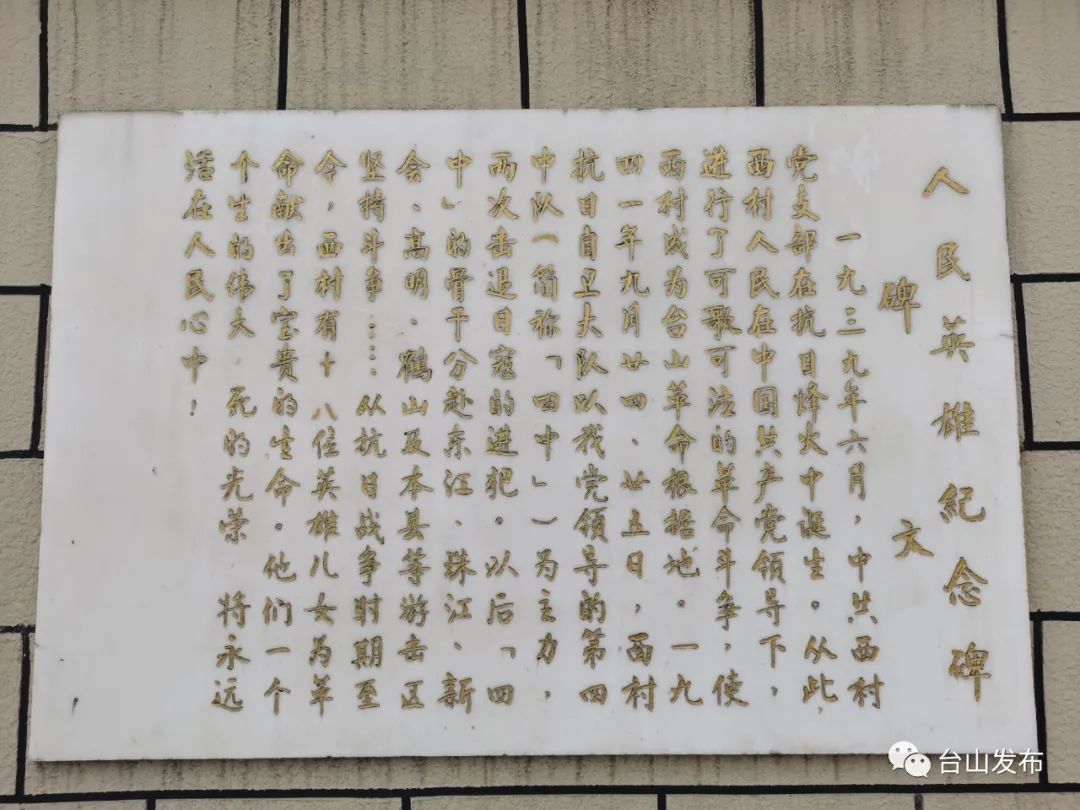 人民英雄纪念碑
碑文
一九三九年六月，中共西村
党支部在抗日烽火中诞生。从此，
西村人民在中国共产党领导下，
进行了可歌可泣的革命斗争，使
西村成为台山革命根据地。一九
四一年九月廿四、廿五日，西村
抗日自卫大队以我党领导的第四
中队（简称「四中」）为主力，
两次击退日寇的进犯。以后「四
中」的骨干分赴东江、珠江、新
会、高明、鹤山及本县等游击区
坚持斗争……从抗日战争时期至
今，西村有十八位英雄儿女为革
命献出了宝贵的生命。他们一个
个生的伟大，死的光荣 将永远
活在人民心中！
台山发布